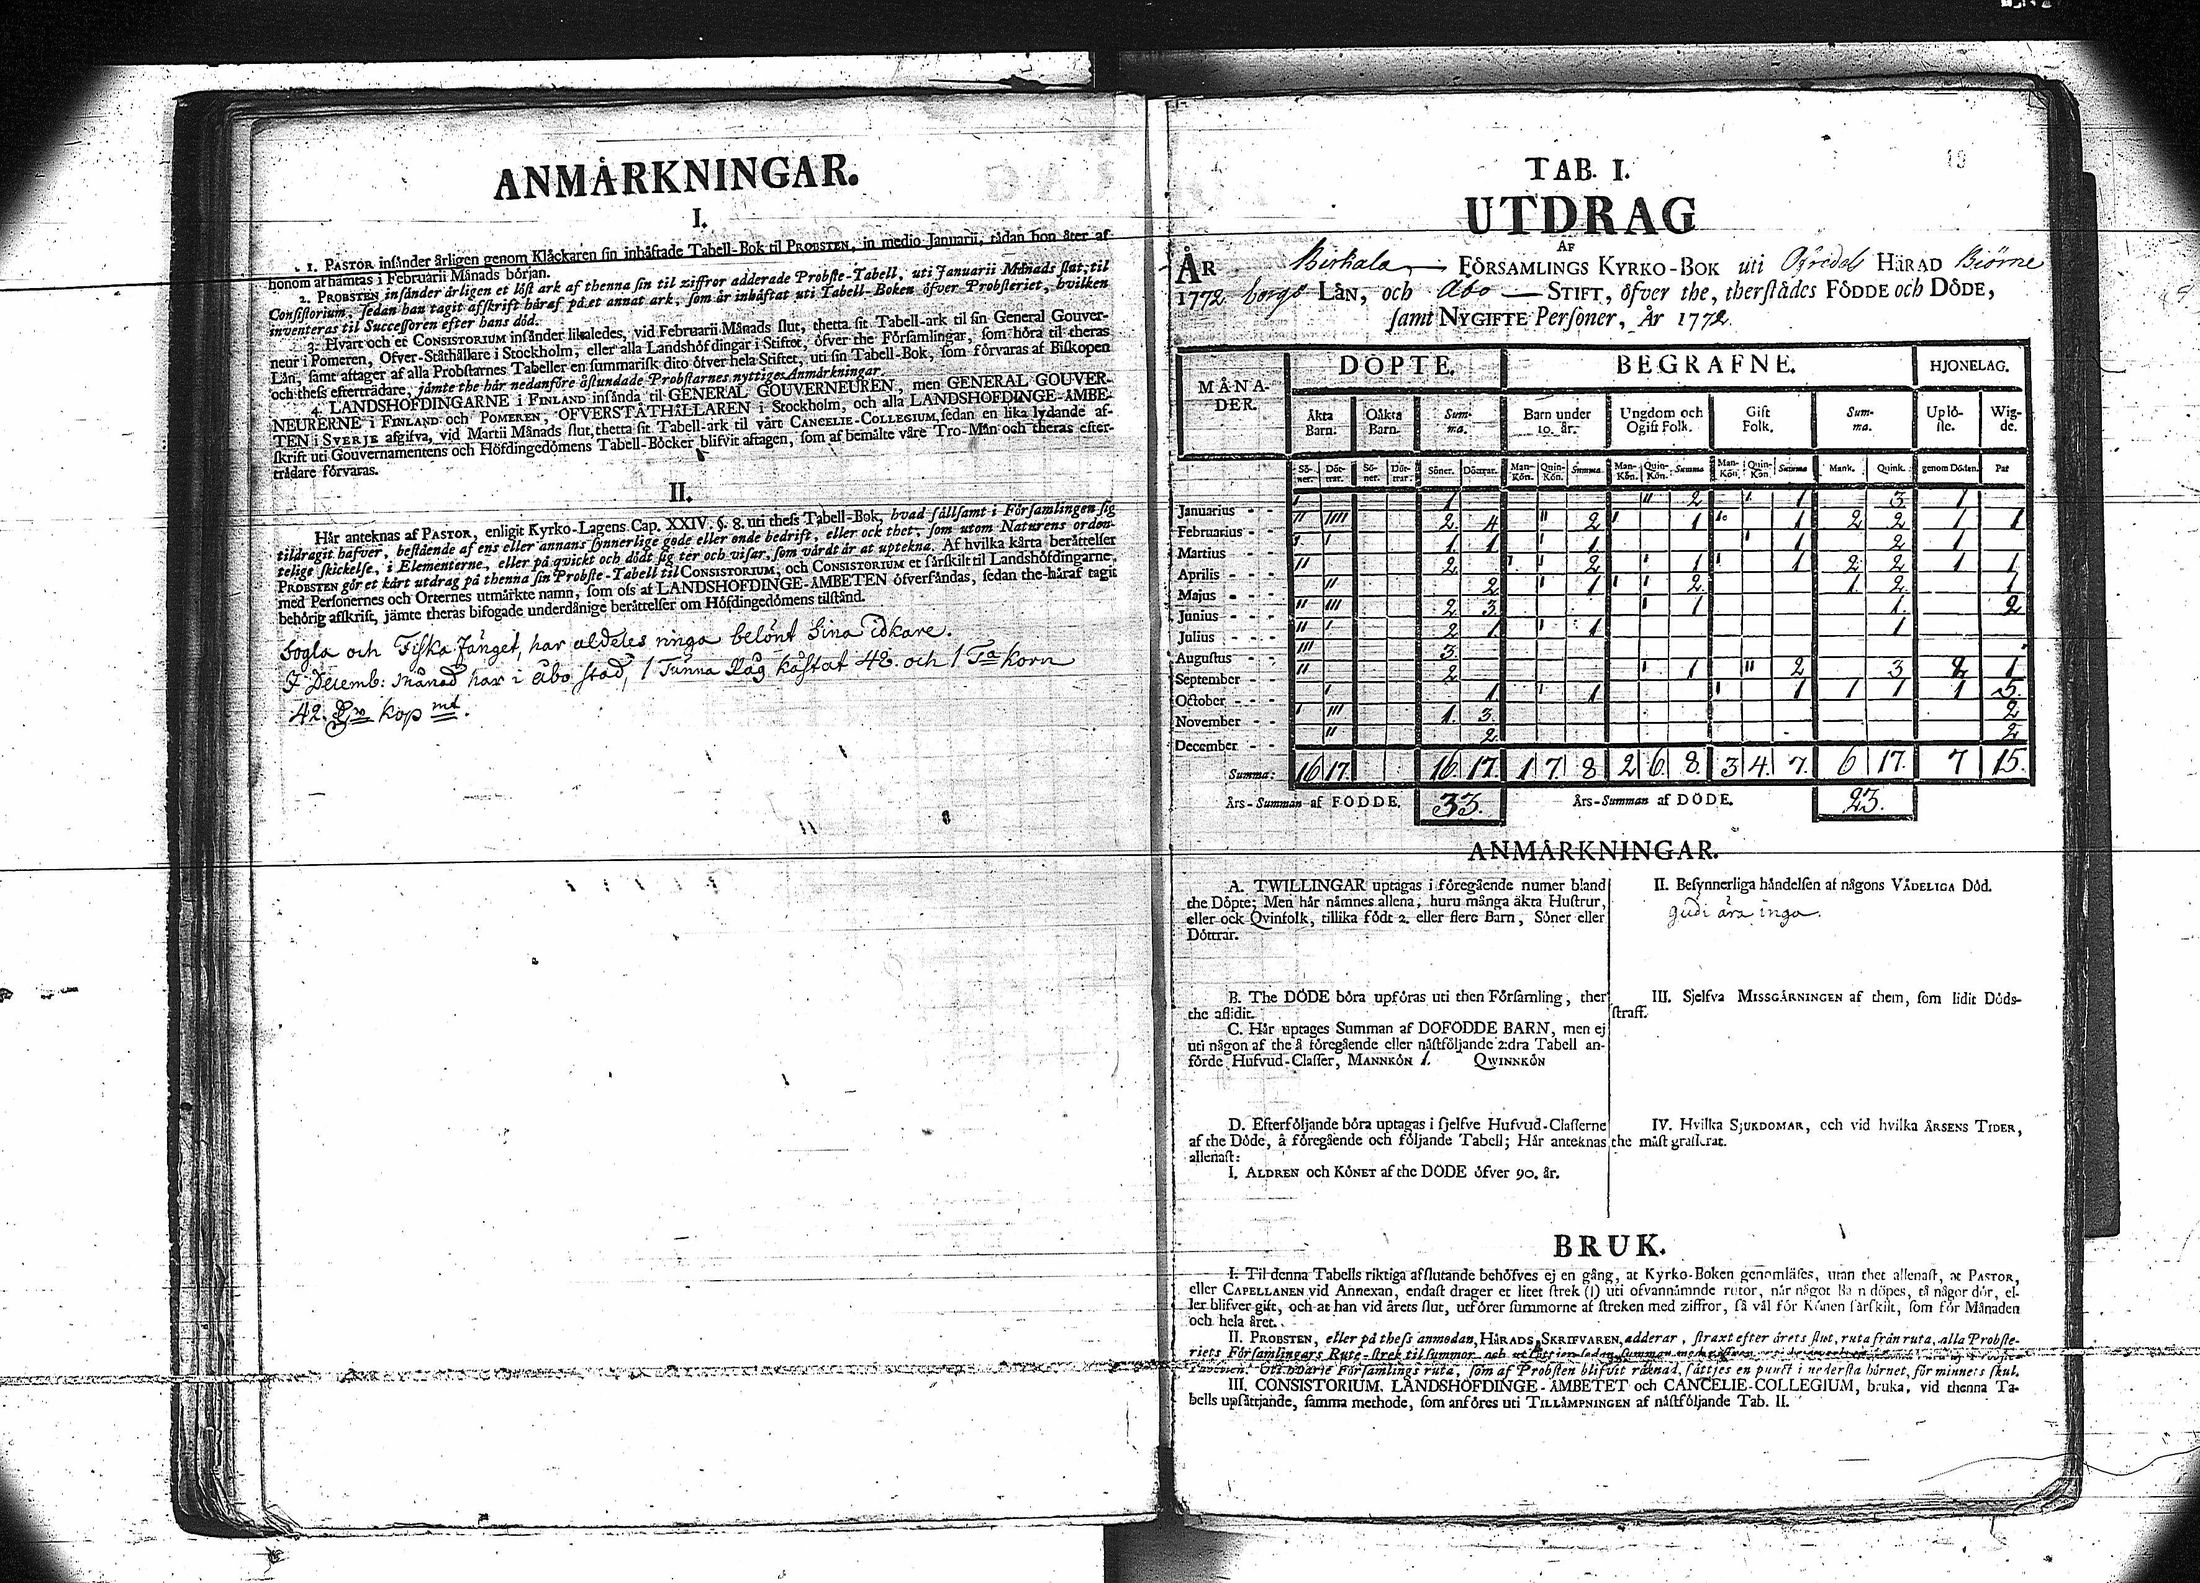 ANMÄRKNINGAR.
I.
1. PASTOR insänder årligen genom Klåckaren sin inhäftade Tabell-Bok til PROBSTEN, in medio Januarii, sådan hon åter af
honom afhämtas i Februarii Månads början.
2. PROBSTEN insänder årligen et löst ark af thenna sin til ziffror adderade Probste-Tabell, uti Januarii Månads slut, til
Consistorium, sedan han tagit afskrift häraf på et annat ark, som är inhäftat uti Tabell-Boken öfver Probsteriet, hvilken
inventeras til Successoren efter hans död.
3. Hvart och et CONSISTORIUM insänder likaledes, vid Februarii Månads slut, thetta sit Tabell-ark til sin General Gouver-
neur i Pomeren, Öfver-Ståthållare i Stockholm, eller alla Landshöfdingar i Stiftet, öfver the Församlingar, som höra til theras
Län, samt aftager af alla Probstarnes Tabeller en summarisk dito öfver hela Stiftet, uti sin Tabell-Bok, som förvaras af Biskopen
och thess efterträdare, jämte the här nedanföre åstundade Probstarnes nyttiges Anmärkningar.
4. LANDSHÖFDINGARNE i FINLAND insända til GENERAL GOUVERNEUREN, men GENERAL GOUVER-
NEURERNE i FINLAND och POMEREN, ÖFVERSTÅTHÅLLAREN i Stockholm, och alla LANDSHÖFDINGE-ÄMBE-
TEN i SVERJE afgifva, vid Martii Månads slut, thetta sit Tabell-ark til vårt CANCELIE-COLLEGIUM, sedan en lika lydande af-
skrift uti Gouvernamentens och Höfdingedömens Tabell-Böcker blifvit aftagen, som af bemälte våre Tro-Män och theras efter-
trädare förvaras.
II.
Här anteknas af PASTOR, enligit Kyrko-Lagens Cap. XXIV. §. 8. uti thess Tabell-Bok, hvad sällsamt i Församlingen sig
tildragit hafver, bestående af ens eller annans synnerlige gode eller onde bedrift, eller ock thet, som utom Naturens orden-
telige skickelse, i Elementerne, eller på qvickt och dödt sig ter och visar, som värdt är at uptekna. Af hvilka korta berättelser
PROBSTEN gör et kårt utdrag på thenna sin Probste-Tabell til CONSISTORIUM, och CONSISTORIUM et särskilt til Landshöfdingarne,
med Personernes och Orternes utmärkte namn, som oss af LANDSHÖFDINGE-ÄMBETEN öfversändas, sedan the häraf tagit
behörig afskrift, jämte theras bifogade underdånige berättelser om Höfdingedömens tilstånd.
Fogla och Fiska fänget, har aldeles ringa belönt sina idkare.
I Decemb: Månad har i Åbo stad, 1 Tunna Råg kåstat 48. och 1 Ta korn
42. kop mt.
10
TAB. I.
UTDRAG
AF
ÅR Birkala FÖRSAMLINGS KYRKO-BOK uti HÄRAD Biörne
1772 borgs LÄN, och Åbo STIFT, öfver the, therstädes FÖDDE och DÖDE,
samt NYGIFTE Personer, År 1772.
MÅNA-DER. DÖPTE. BEGRAFNE. HJONELAG.
Äkta Barn. Oäkta Barn. Sum-ma. Barn under 10. år. Ungdom och Ogift Folk. Gift Folk. Sum-ma. Uplö-ste. Wig-de.
Sö-ner. Döt-trar. Sö-ner. Döt-trar. Söner. Döttrar. Man-Kön. Quin-Kön. Summa Man-Kön. Quin-Kön. Summa Man-Kön. Quin-Kön. Summa Mank. Quink. genom Döden. Par
Januarius - - ı 1 ıı 2 ı 1 3 1
Februarius - - ıı ıııı 2 4 ıı 2 ı 1 ı 1 2 2 1 1
Martius - - ı ı 1 1 ı 1 ı 1 2 1
Aprilis - - ıı 2 ı ı 2 ı 1 ı 1 2 2 1 1
Majus - - ıı 2 ı 1 ı ı 2 1 2 1
Junius - - ıı ııı 2 3 ı 1 1 2
Julius - - ıı ı 2 1 ı 1 1
Augustus - - ııı 3
September - - ıı 2 ı 1 ıı 2 3 2 1
October - - ı 1 ı 1 ı 1 1 1 1 5
November - - ı ııı 1 3 2
December - - ıı 2 2
Summa: 16 17 16 17 1 7 8 2 6 8 3 4 7 6 17 7 15
Års-Summan af FÖDDE. 33. Års-Summan af DÖDE. 23.
ANMÄRKNINGAR.
A. TWILLINGAR uptagas i föregående numer bland
the Döpte; Men här nämnes allena, huru många äkta Hustrur,
eller ock Qvinfolk, tillika födt 2. eller flere Barn, Söner eller
Döttrar.
B. The DÖDE böra upföras uti then Församling, ther
the aflidit.
C. Här uptages Summan af DÖFÖDDE BARN, men ej
uti någon af the å föregående eller nästföljande 2:dra Tabell an-
förde Hufvud-Classer, MANNKÖN 1. QWINNKÖN
D. Efterföljande böra uptagas i sjelfve Hufvud-Classerne
af the Döde, å föregående och följande Tabell; Här anteknas
allenast:
I. ÅLDREN och KÖNET af the DÖDE öfver 90. år.
II. Besynnerliga händelsen af någons VÅDELIGA Död.
gudi ära inga.
III. Sjelfva MISSGÄRNINGEN af them, som lidit Döds-
straff.
IV. Hvilka SJUKDOMAR, och vid hvilka ÅRSENS TIDER,
the mäst grasserat.
BRUK.
I. Til denna Tabells riktiga afslutande behöfves ej en gång, at Kyrko-Boken genomläses, utan thet allenast, at PASTOR,
eller CAPELLANEN vid Annexan, endast drager et litet strek (|) uti ofvannämnde rutor, när något Barn döpes, så någor dör, el-
ler blifver gift, och at han vid årets slut, utförer summorne af streken med ziffror, så väl för Könen särskilt, som för Månaden
och hela året.
II. PROBSTEN, eller på thess anmodan, HÄRADS SKRIFVAREN, adderar, straxt efter årets slut, ruta från ruta, alla Probste-
riets Församlingars Rute-strek til summor
Uti hvarje Församlings ruta, som af Probsten blifvit räknad, sättjes en punct i nedersta hörnet, för minnets skul.
III. CONSISTORIUM, LANDSHÖFDINGE-ÄMBETET och CANCELIE-COLLEGIUM, bruka, vid thenna Ta-
bells upsättjande, samma methode, som anföres uti TILLÄMPNINGEN af nästföljande Tab. II.